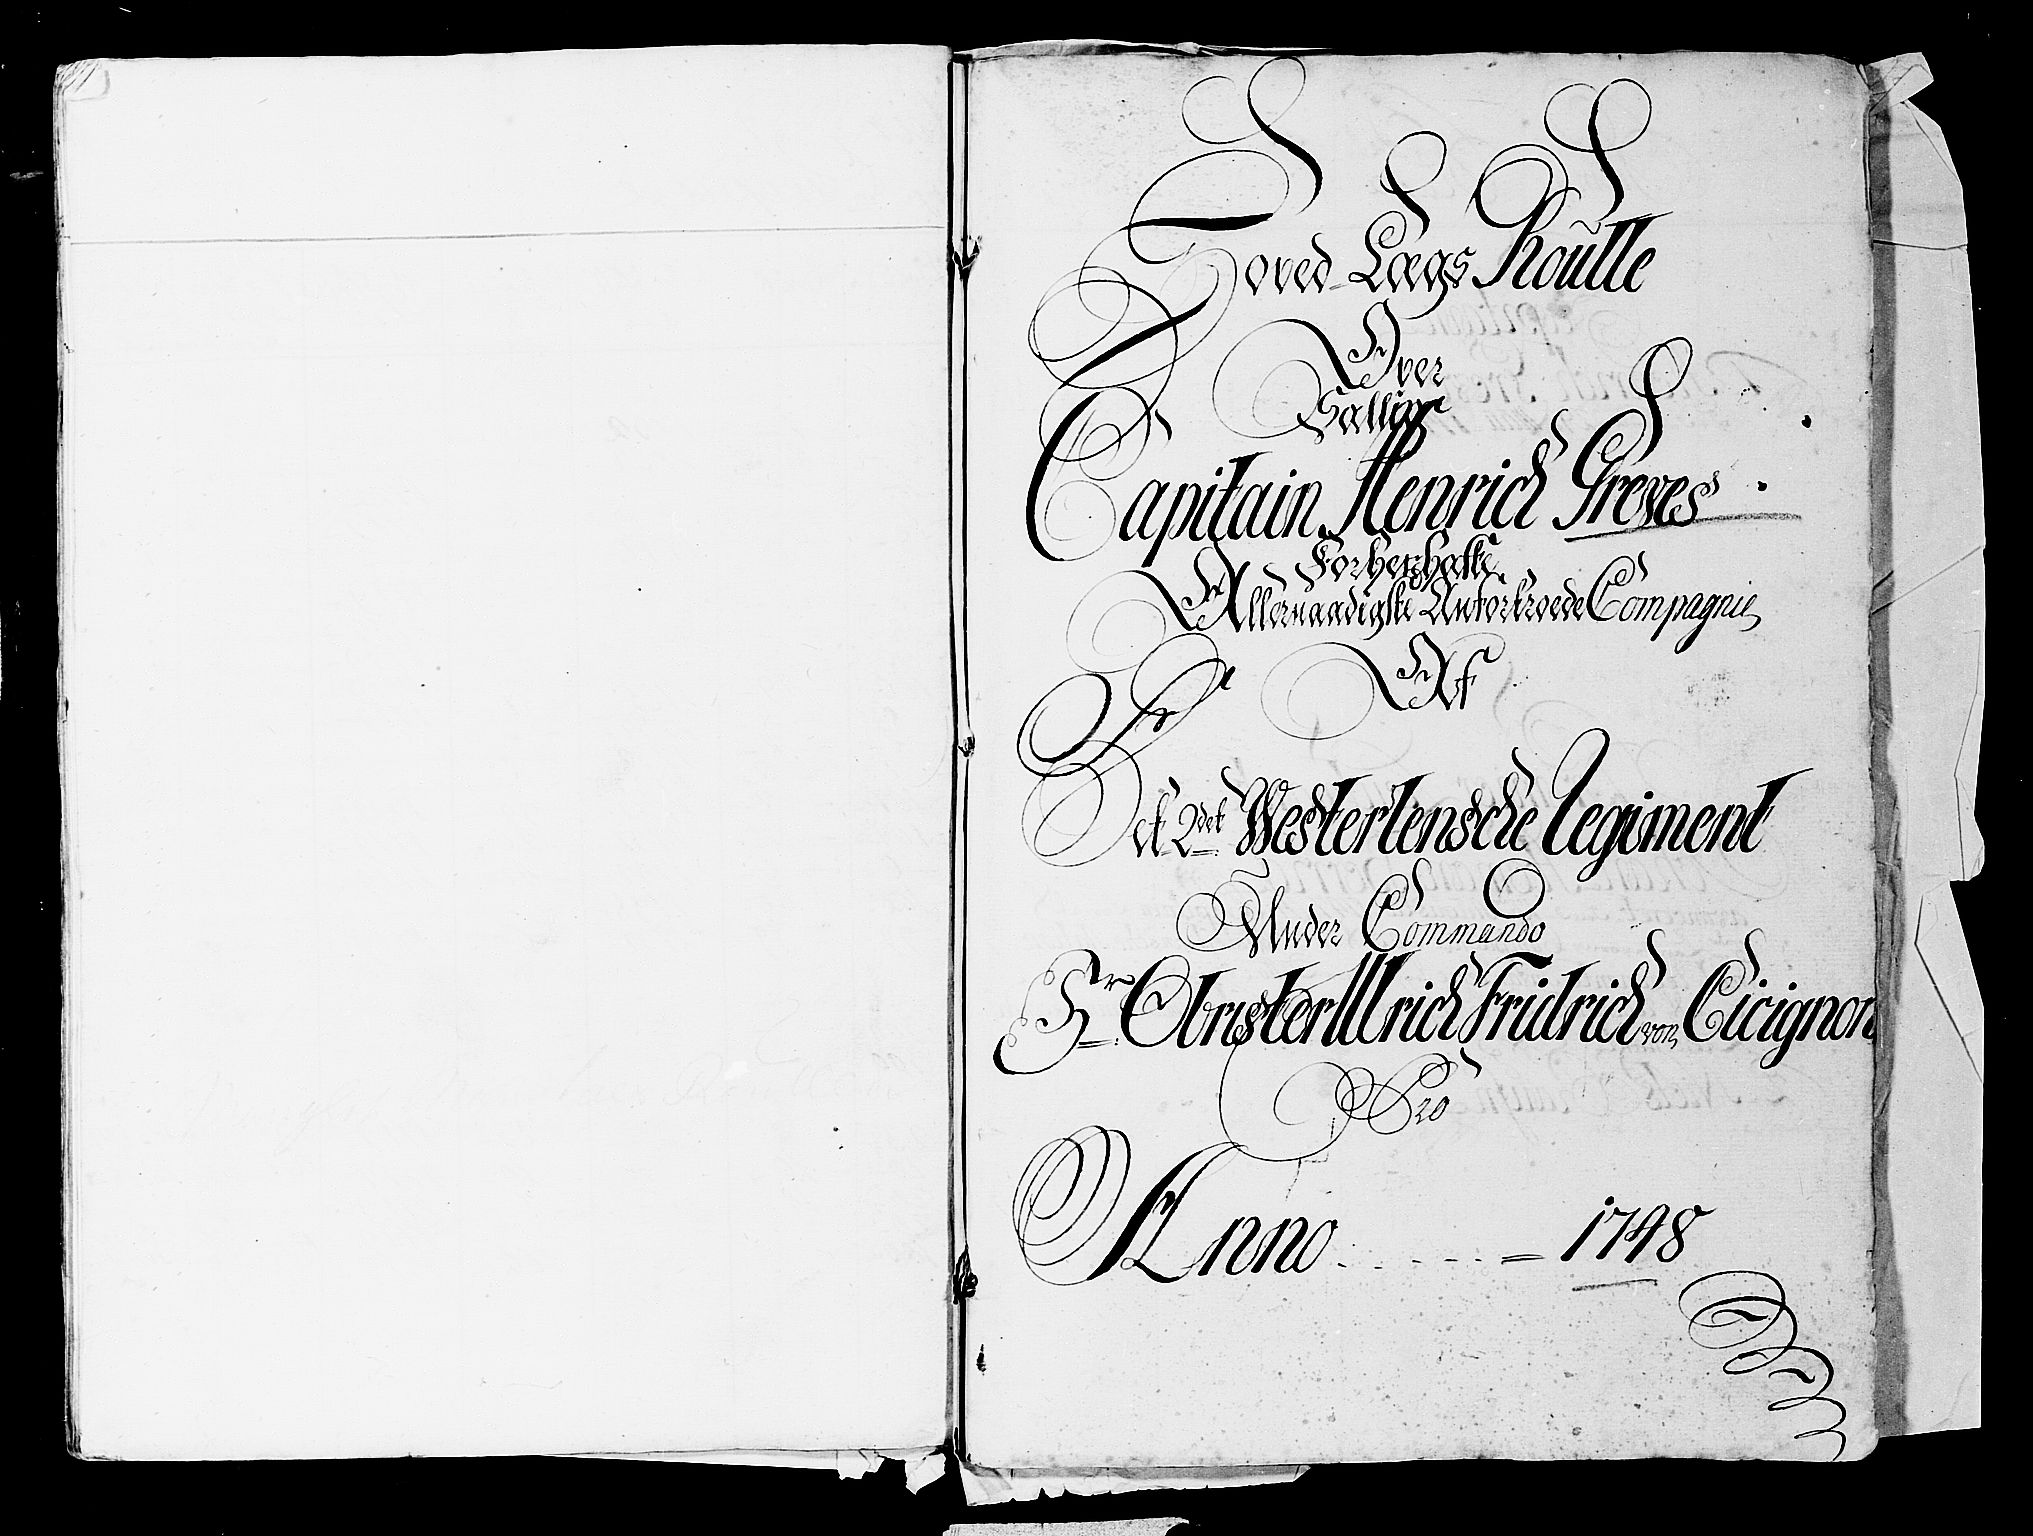 Hoved Lægs Roulle
Over
Sallig
Capitain Henrich Greves
Forhen hafte
Allernaadigste Anfortroede Compagnie
Af
Det 2det Westerlensche Regiment
Under Commando
Hr Obrister Ulrich Fridrich von Cicignon
Pro
Anno 1748